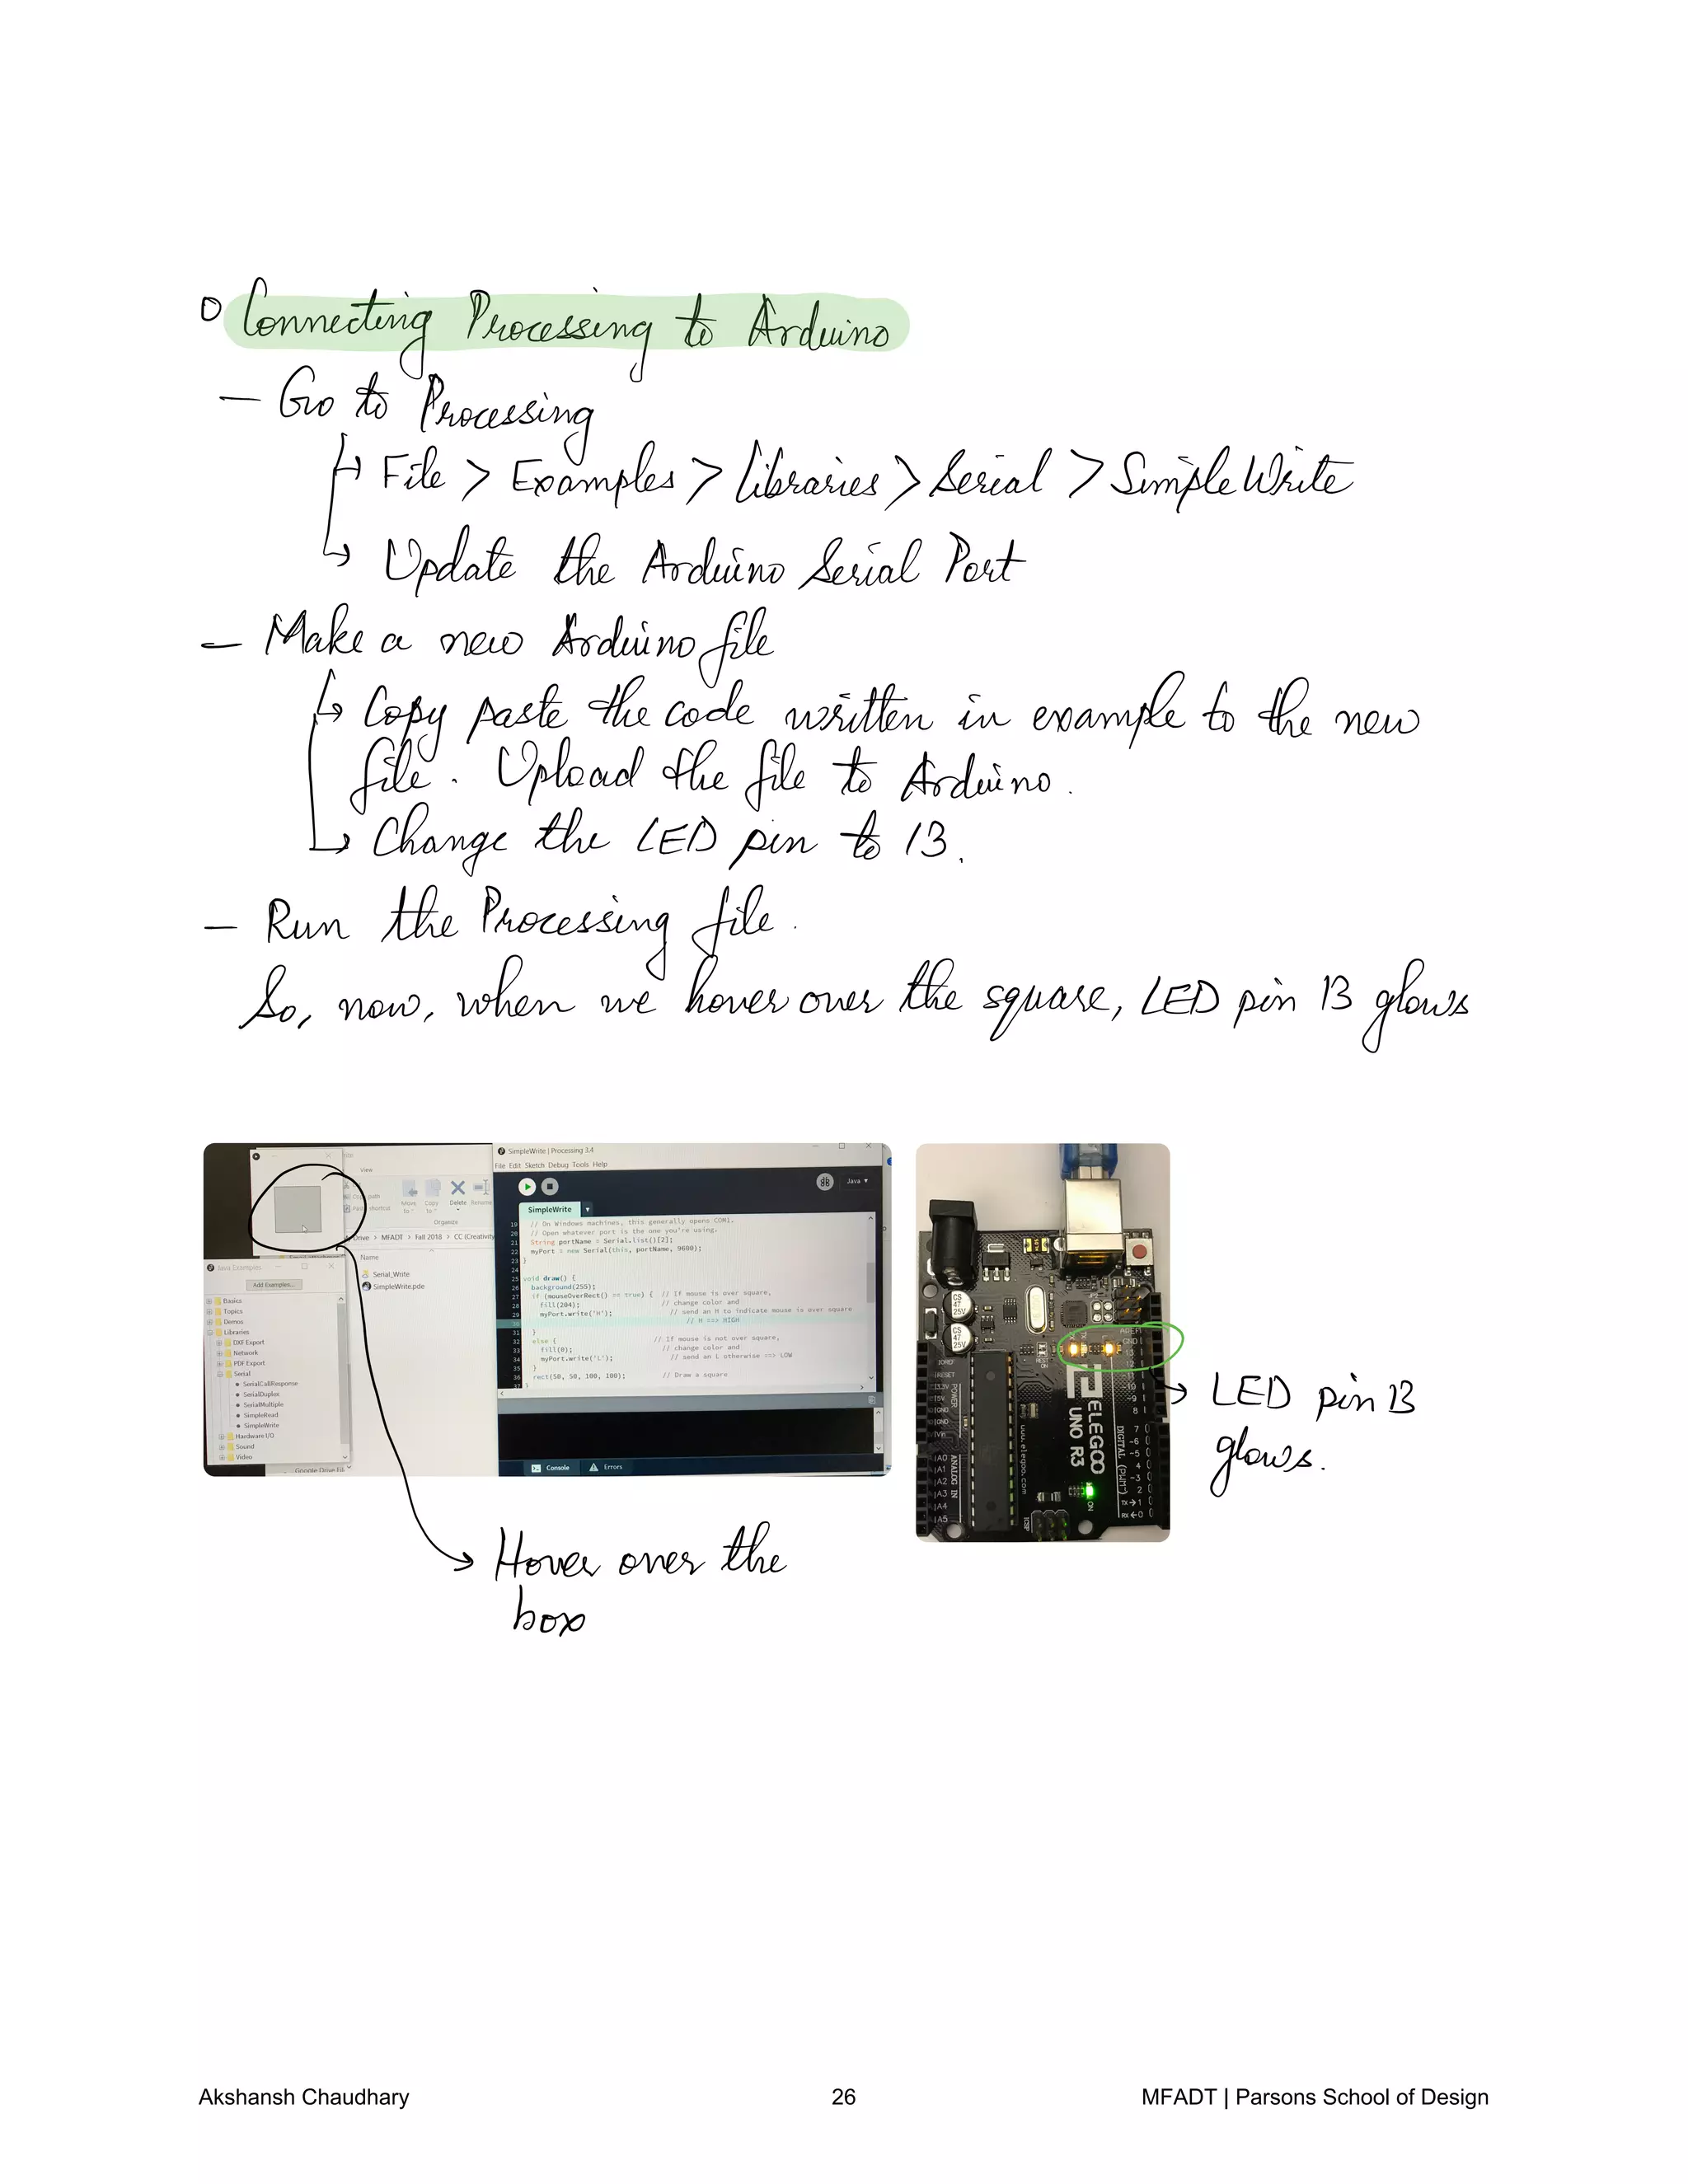 Connecting Processing to Arduino
- Go to Processing
↳ File > Examples > Libraries > Serial > SimpleWrite
↳ Update the Arduino Serial Port
- Make a new Arduino file
↳ Copy paste the code written in example to the new
file. Upload the file to Arduino.
↳ Change the LED pin to 13.
- Run the Processing file.
So, now, when we hover over the square, LED pin 13 glows
SimpleWrite | Processing 3.4
File Edit Sketch Debug Tools Help
Java
SimpleWrite
19 // On Windows machines, this generally opens COM1.
20 // Open whatever port is the one you're using.
21 String portName = Serial.list()[2];
22 myPort = new Serial(this, portName, 9600);
23 }
24
25 void draw() {
26 background(255);
27 if (mouseOverRect() == true) { // If mouse is over square,
28 fill(204); // change color and
29 myPort.write('H'); // send an H to indicate mouse is over square
30 // H ==> HIGH
31 }
32 else { // If mouse is not over square,
33 fill(0); // change color and
34 myPort.write('L'); // send an L otherwise ==> LOW
35 }
36 rect(50, 50, 100, 100); // Draw a square
37 }
Console Errors
View
Move to
Copy to
Delete
Rename
Organize
Drive > MFADT > Fall 2018 > CC (Creativity
Name
Serial_Write
SimpleWrite.pde
Java Examples
Add Examples...
Basics
Topics
Demos
Libraries
DXF Export
Network
PDF Export
Serial
SerialCallResponse
SerialDuplex
SerialMultiple
SimpleRead
SimpleWrite
Hardware I/O
Sound
Video
CS
47
25V
CS
47
25V
AREF
GND
13
12
~10
~9
8
7
~6
~5
4
~3
2
TX→1
RX←0
DIGITAL (PWM~)
ELEGOO
UNO R3
www.elegoo.com
ON
ICSP
IOREF
RESET
3.3V
5V
GND
GND
Vin
POWER
A0
A1
A2
A3
A4
A5
ANALOG IN
LED pin 13
glows.
Hover over the
box
Akshansh Chaudhary
26
MFADT | Parsons School of Design